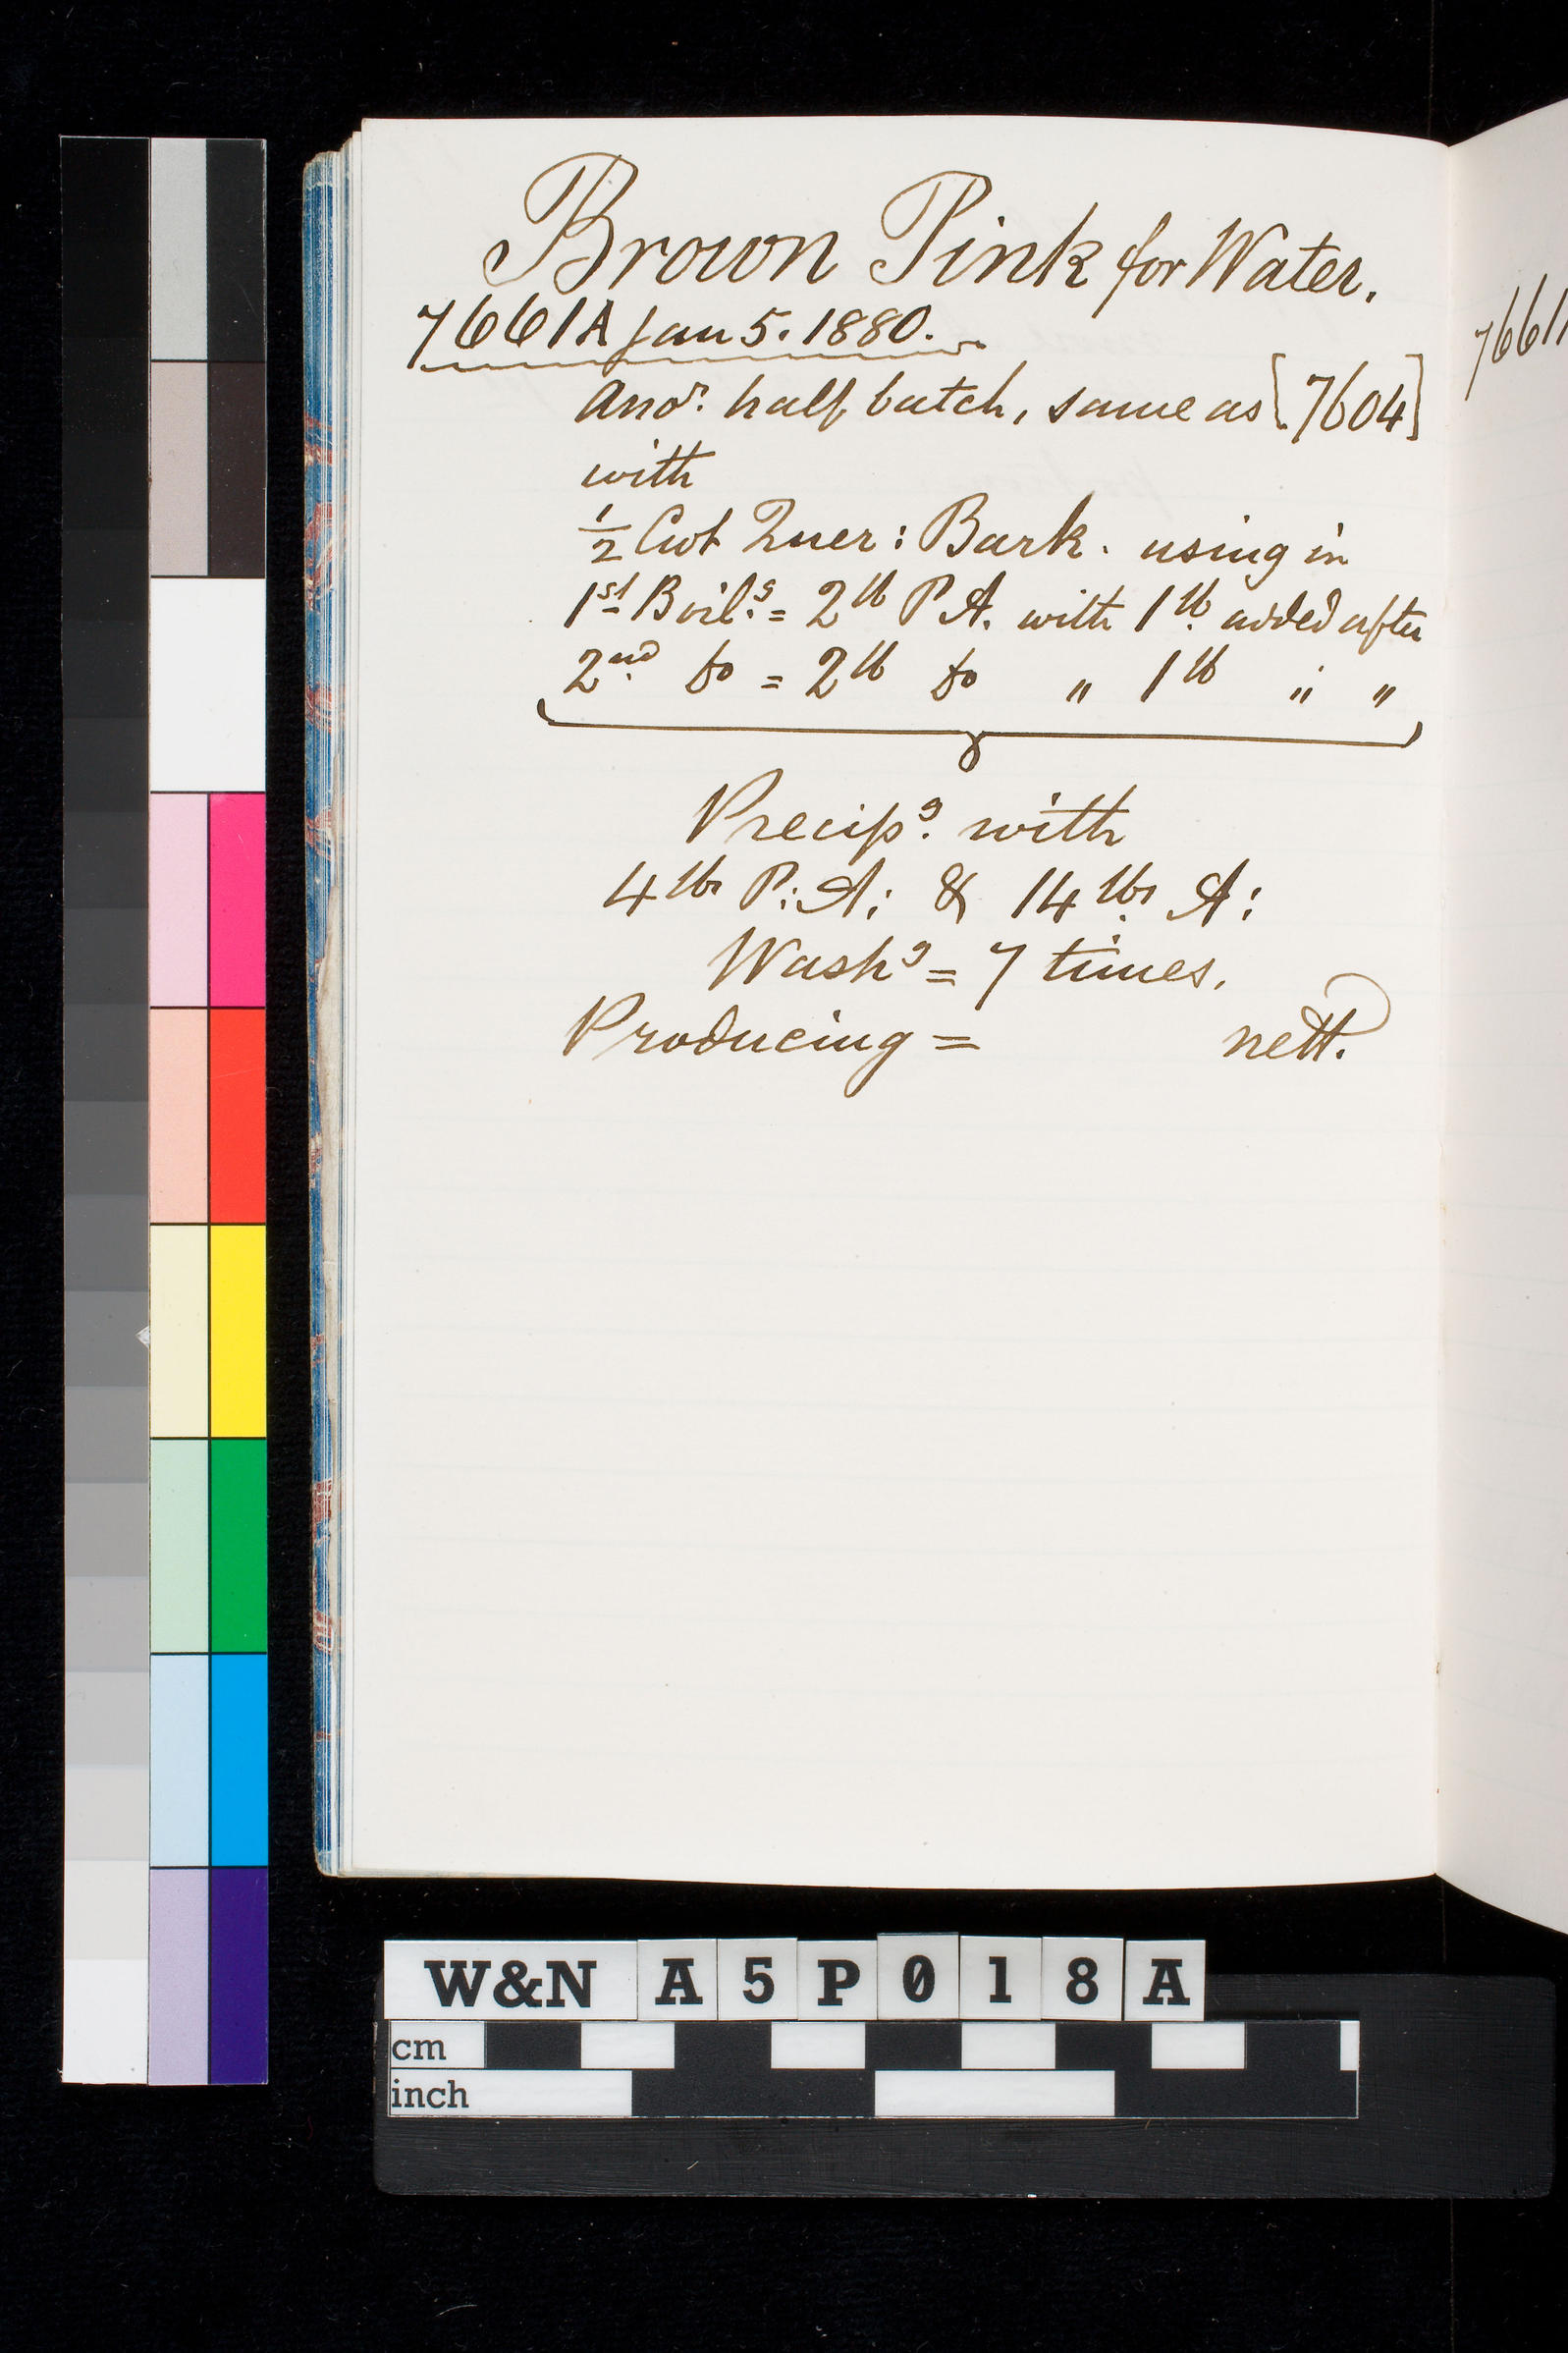 Brown Pink for Water.
7661A Jan 5. 1880.
Anor. half batch, same as [7604]
with
½ Cwt Quer: Bark. using in
1st Boil.g = 2 lb P A. with 1 lb. added after
2nd. do = 2 lb do " 1 lb " "
Precip.g with
4 lbs P: A: & 14 lbs. A:
Washg = 7 times.
Producing = nett.
7661
W&N A5P018A
cm
inch